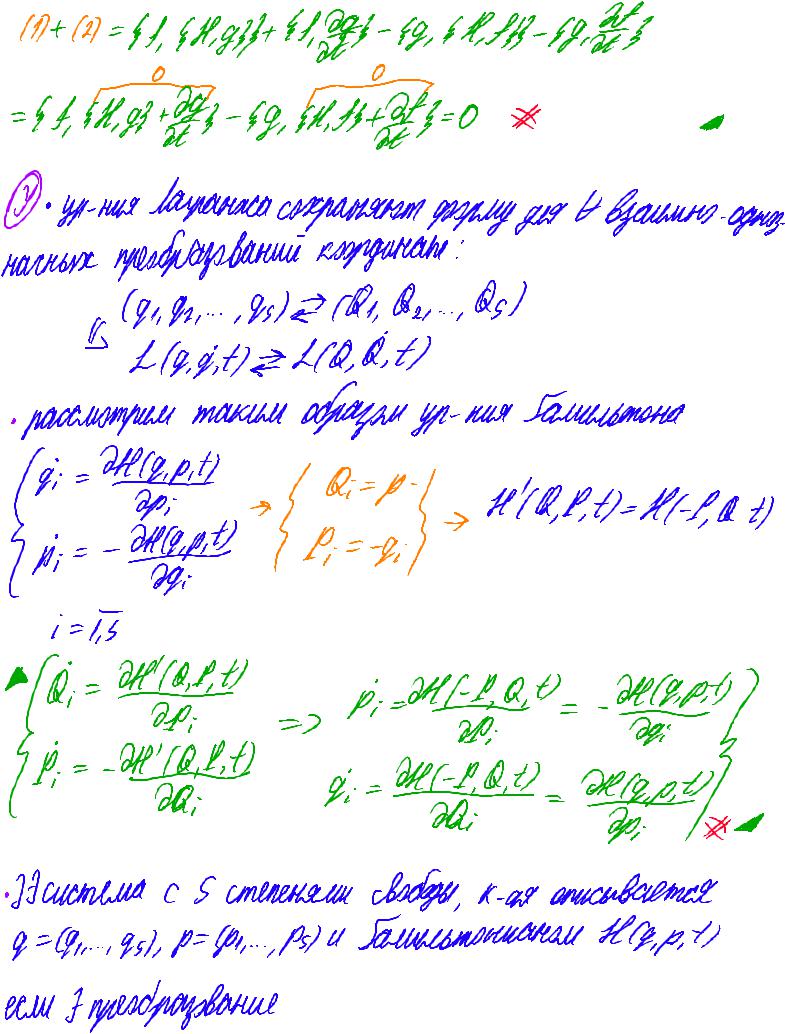 (1) + (2) = {f, {H, g}} + {f, ∂g/∂t} − {g, {H, f}} − {g, ∂f/∂t}
0 0
= {f, {H, g} + ∂g/∂t} − {g, {H, f} + ∂f/∂t} = 0
3 • ур-ния Лагранжа сохраняют форму для ∀ взаимно-одноз-
начных преобразований координат:
(q1, q2, ..., qs) ⇄ (Q1, Q2, ..., Qs)
⇓ L(q, q̇, t) ⇄ L(Q, Q̇, t)
• рассмотрим таким образом ур-ния Гамильтона
{ q̇i = ∂H(q, p, t)/∂pi → { Qi = p } → H'(Q, P, t) = H(-P, Q t)
ṗi = − ∂H(q, p, t)/∂qi Pi = -qi
i = 1,s
{ Q̇i = ∂H'(Q, P, t)/∂Pi => ṗi = ∂H(-P, Q, t)/∂Pi = − ∂H(q, p, t)/∂qi }
Ṗi = − ∂H'(Q, P, t)/∂Qi q̇i = ∂H(-P, Q, t)/∂Qi = ∂H(q, p, t)/∂pi
• ∃∃ система с S степенями свободы, к-ая описывается
q = (q1, ..., qs), p = (p1, ..., ps) и Гамильтонианом H(q, p, t)
если ∃ преобразование